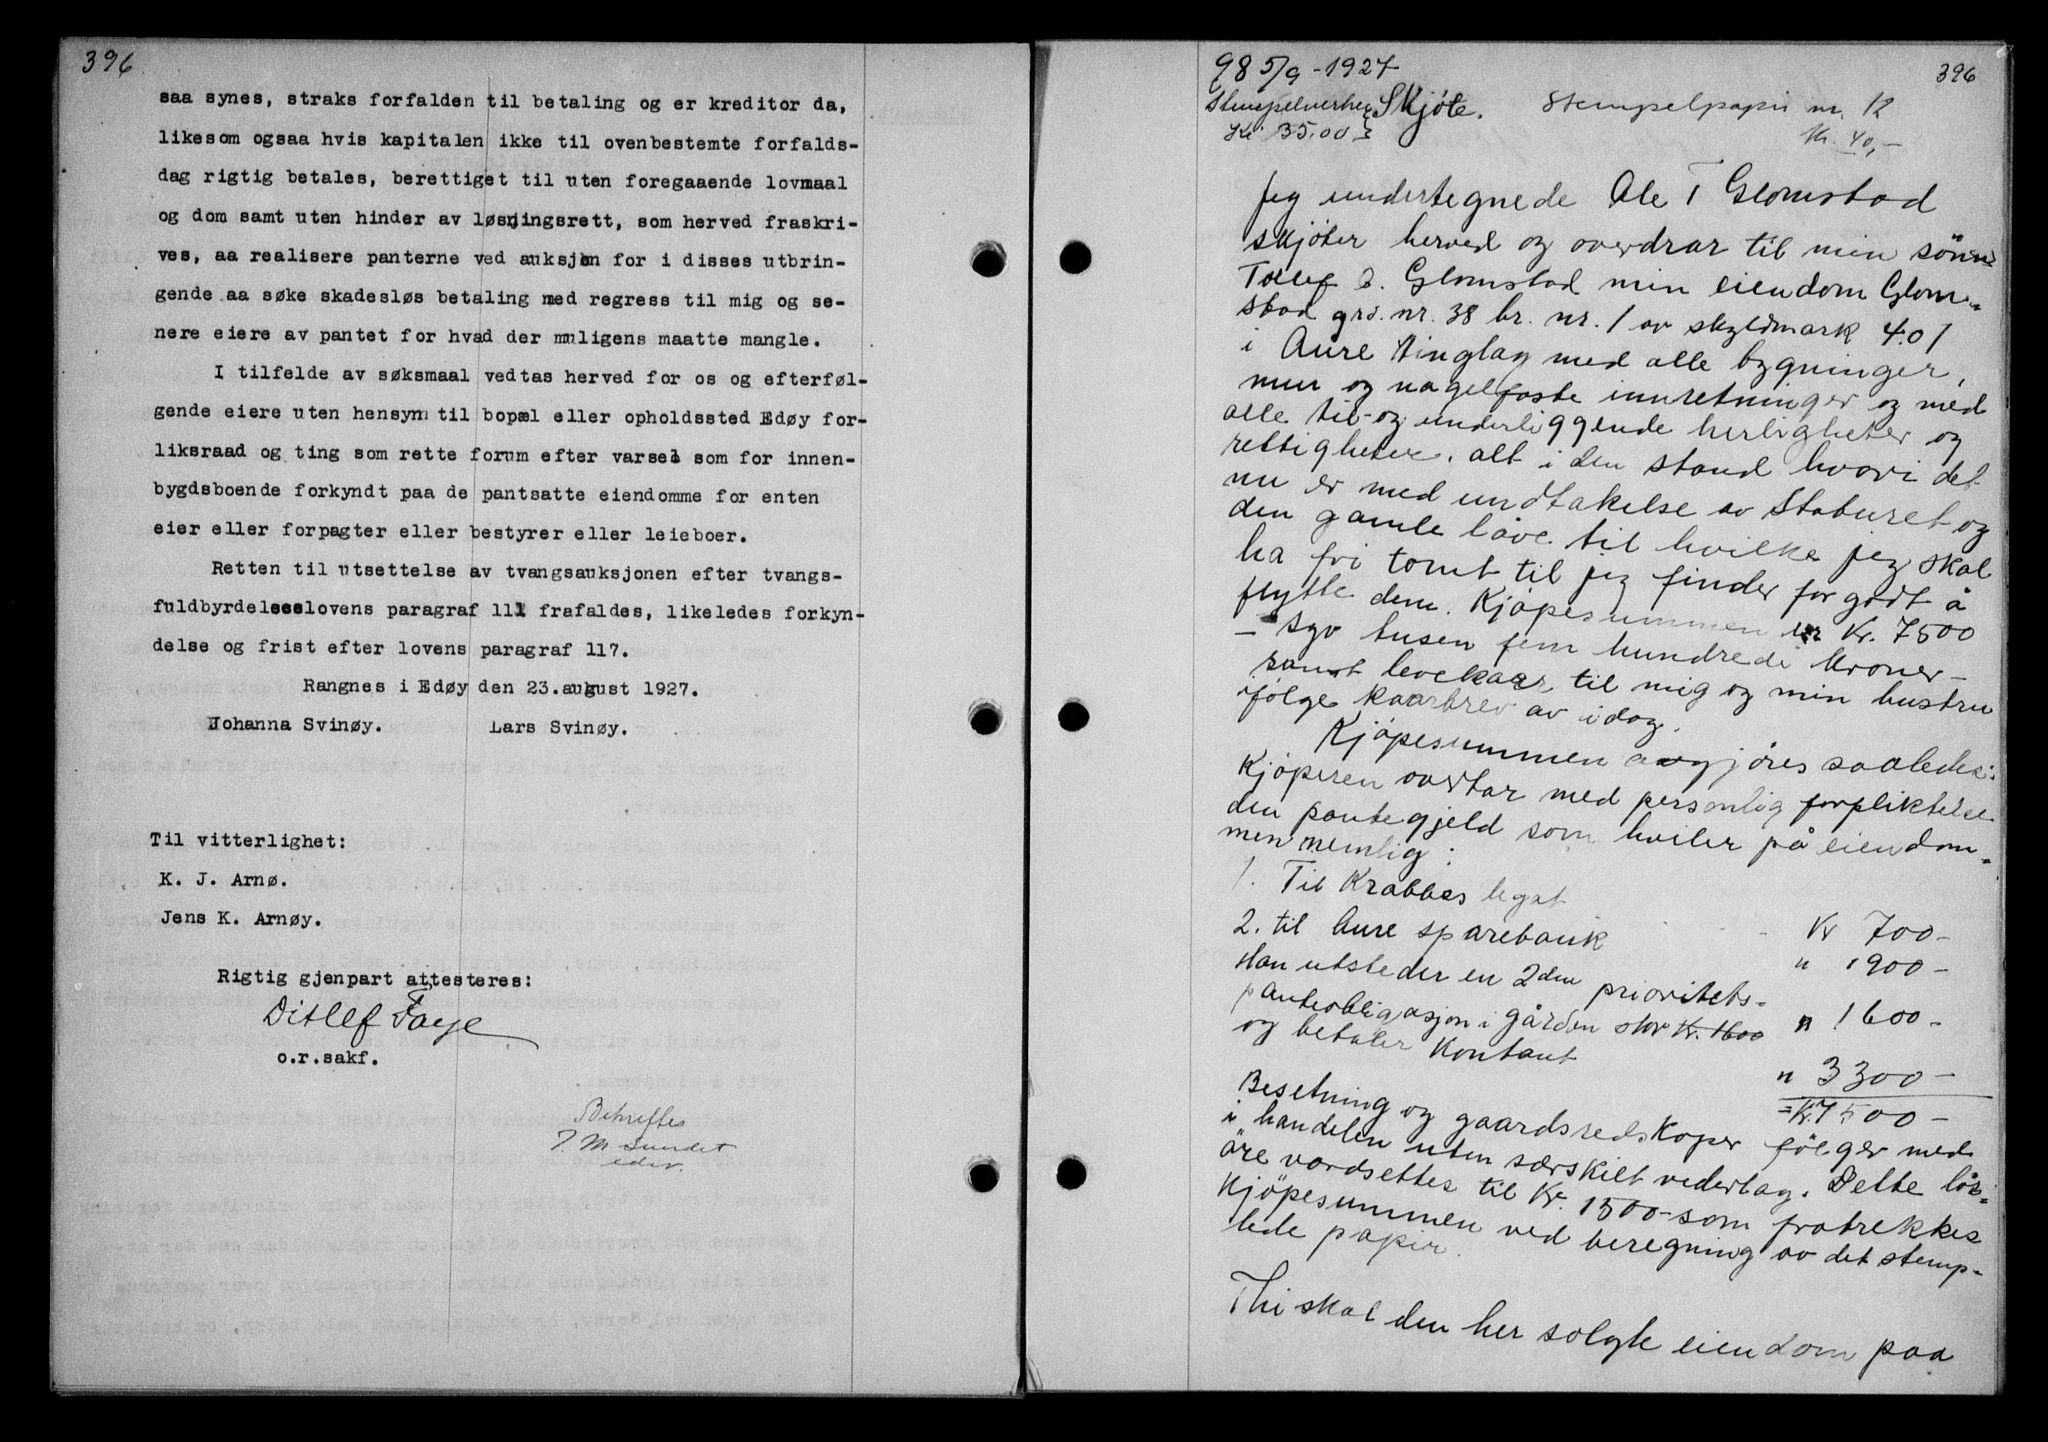 396
saa synes, straks forfalden til betaling og er kreditor da,
likesom ogsaa hvis kapitalen ikke til ovenbestemte forfalds-
dag rigtig betales, berettiget til uten foregaaende lovmaal
og dom samt uten hinder av løsningsrett, som herved fraskri-
ves, aa realisere panterne ved auksjon for i disses utbrin-
gende aa søke skadesløs betaling med regress til mig og se-
nere eiere av pantet for hvad der muligens maatte mangle.
I tilfelde av søksmaal vedtas herved for os og efterføl-
gende eiere uten hensym til bopæl eller opholdssted Edøy for-
liksraad og ting som rette forum efter varsel som for innen-
bygdsboende forkyndt paa de pantsatte eiendomme for enten
eier eller forpagter eller bestyrer eller leieboer.
Retten til utsettelse av tvangsauksjonen efter tvangs-
fuldbyrdelseslovens paragraf 111 frafaldes, likeledes forkyn-
delse og frist efter lovens paragraf 117.
Rangnes i Edøy den 23.august 1927.
Johanna Svinøy. Lars Svinøy.
Til vitterlighet:
K. J. Arnø.
Jens K. Arnøy.
Rigtig gjenpart attesteres:
Ditlef Faye
o.r.sakf.
Bekreftes
P. M Sundet
edsv.
98 5/9-1927
396
Skjöte. Stempelpapir nr. 12
Kr. 35,00
Kr. 40,-
Jeg undertegnede Ole T Glomstad
skjöter herved og overdrar til min sönn
Tollef O. Glomstad min eiendom Glom-
stad grd. nr. 38 br. nr. 1 av skyldmark 4.01
i Aure tinglag med alle bygninger,
mur og nagelfaste innretninger og med
alle til- og underliggende herligheter og
rettigheter, alt i den stand hvori det
nu er med undtakelse av Staburet og
den gamle låve til hvilke jeg skal
ha fri tomt til jeg finder for godt å
flytte dem. Kjöpesummen er Kr. 7500
- syv tusen fem hundrede kroner -
samt levekaar til mig og min hustru
ifölge kaarbrev av idag.
Kjöpesummen avgjöres saaledes:
Kjöperen overtar med personlig forpliktelse
den pantegjeld som hviler på eiendom-
men nemlig:
1. Til Krabbes legat Kr 700-
2. til Aure sparebank " 1900-
Han utsteder en 2den prioritets-
panteobligasjon i gården stor Kr. 1600 " 1600-
og betaler kontant " 3300-
= Kr. 7500-
Besetning og gaardsredskaper fölger med
i handelen uten særskilt vederlag. Dette lös-
öre værdsettes til Kr. 1500- som fratrekkes
kjöpesummen ved beregning av det stemp-
lede papir.
Thi skal den her solgte eiendom paa